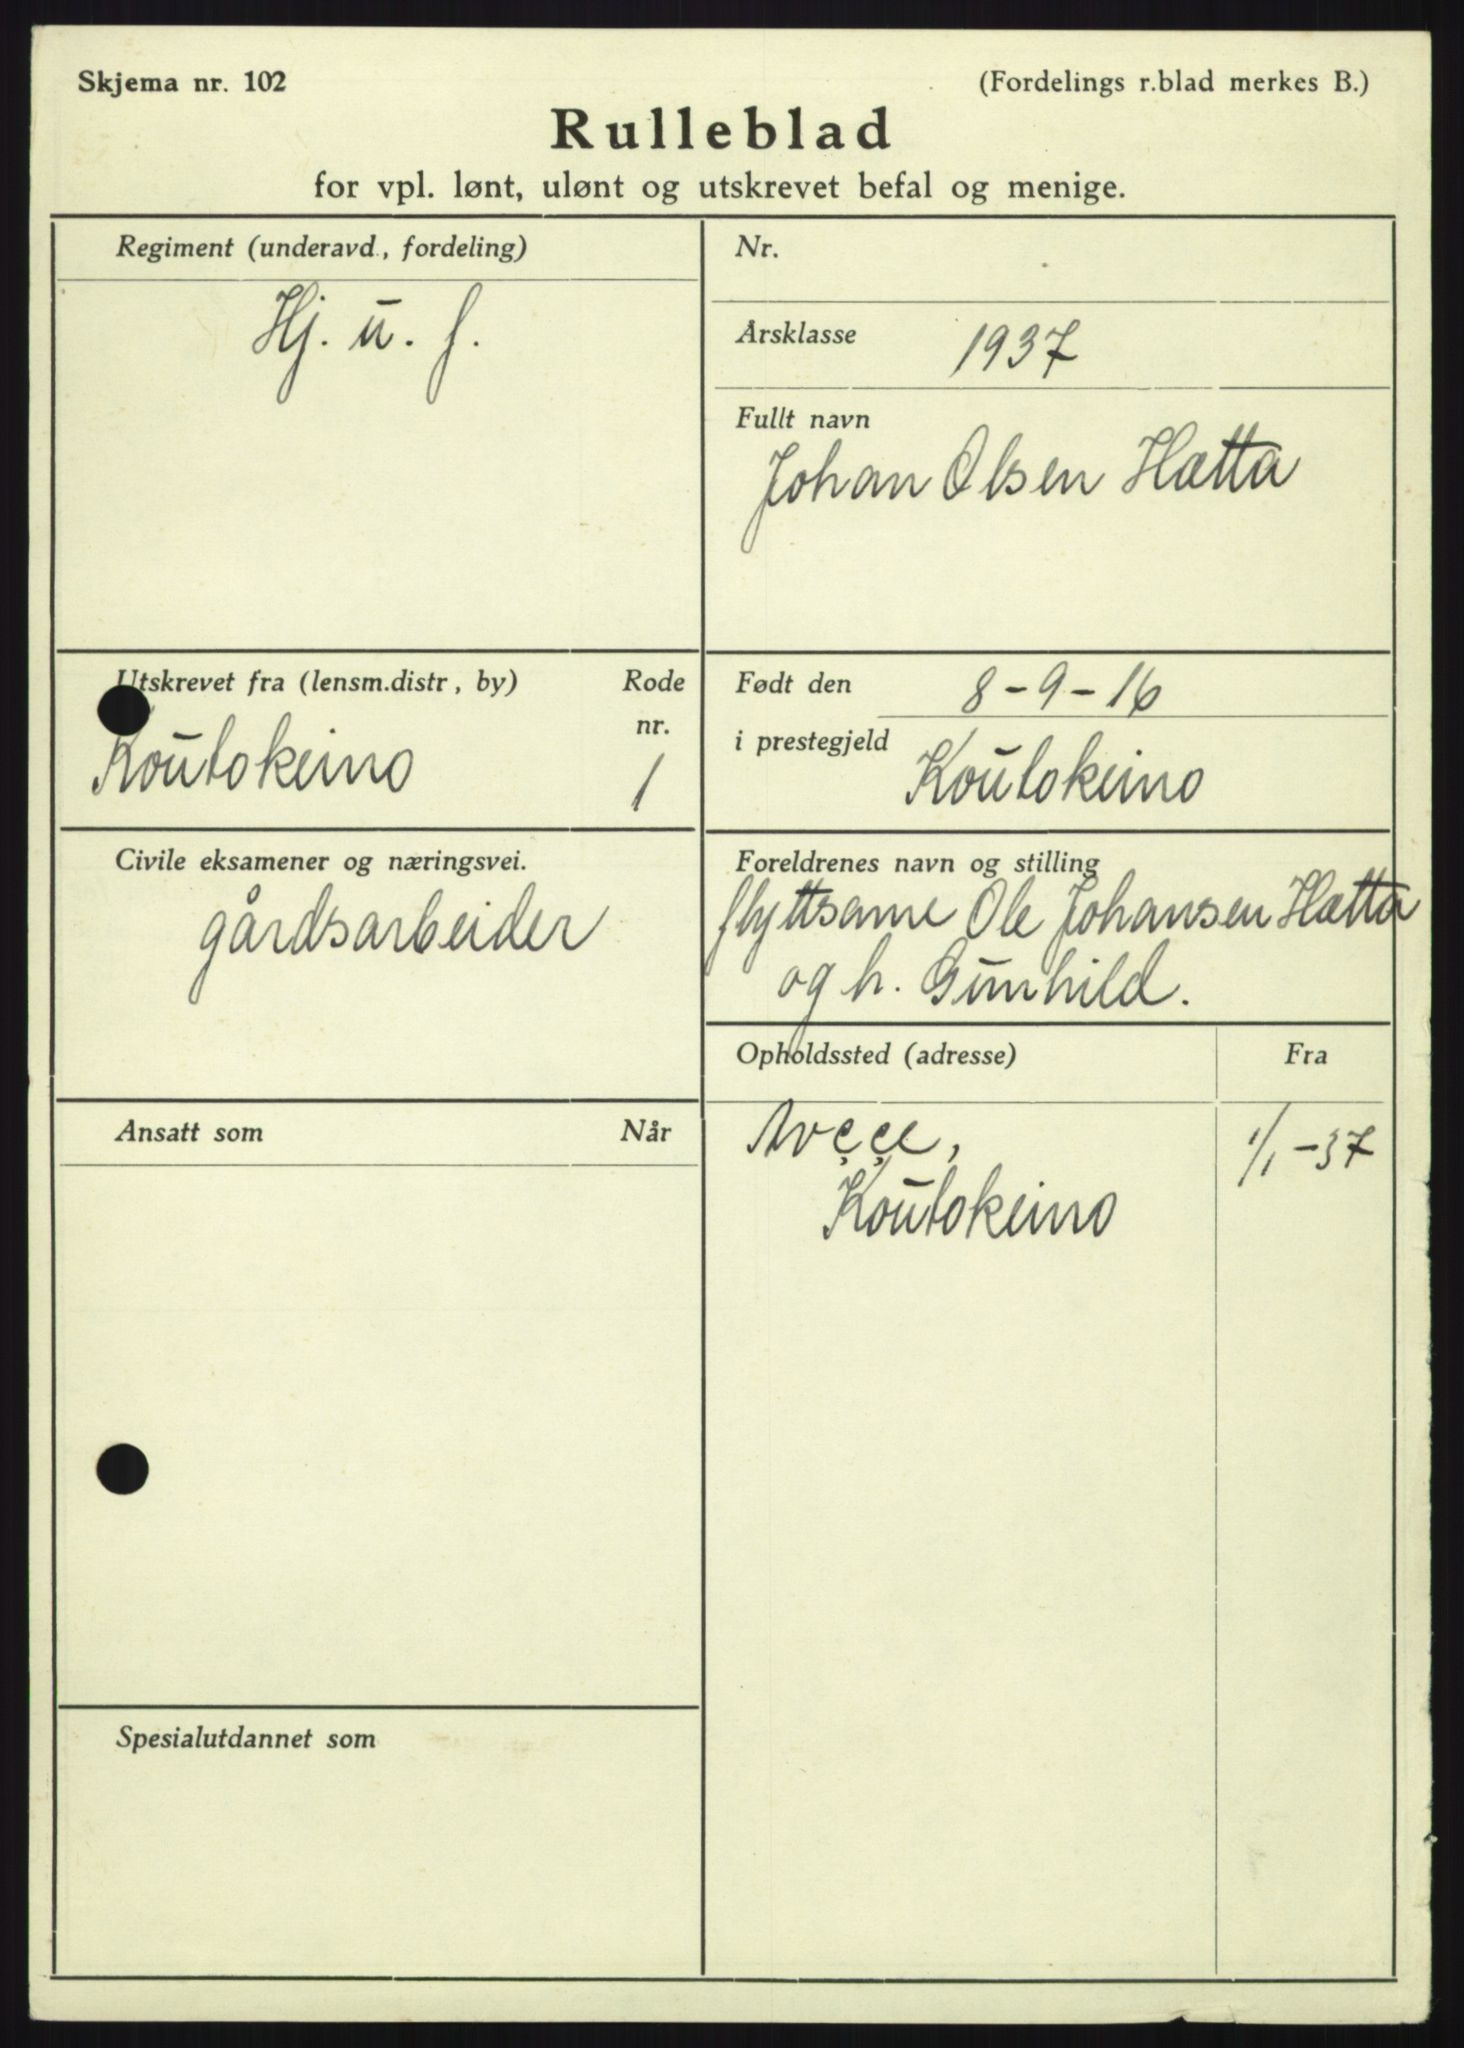 Skjema nr. 102
(Fordelings r.blad merkes B.)
Rulleblad
for vpl. lønt, ulønt og utskrevet befal og menige.
Regiment (underavd., fordeling)
Hj. u. f.
Nr.
Årsklasse 1937
Fullt navn
Johan Olsen Hætta
Utskrevet fra (lensm.distr, by)
Rode nr.
Koutokeino
1
Født den 8-9-16
i prestegjeld Koutokeino
Civile eksamener og næringsvei.
gårdsarbeider
Foreldrenes navn og stilling
flyttsame Ole Johansen Hætta
og h. Gunhild.
Opholdssted (adresse)
Fra
Koutokeino
1/1-37
Ansatt som
Når
Spesialutdannet som